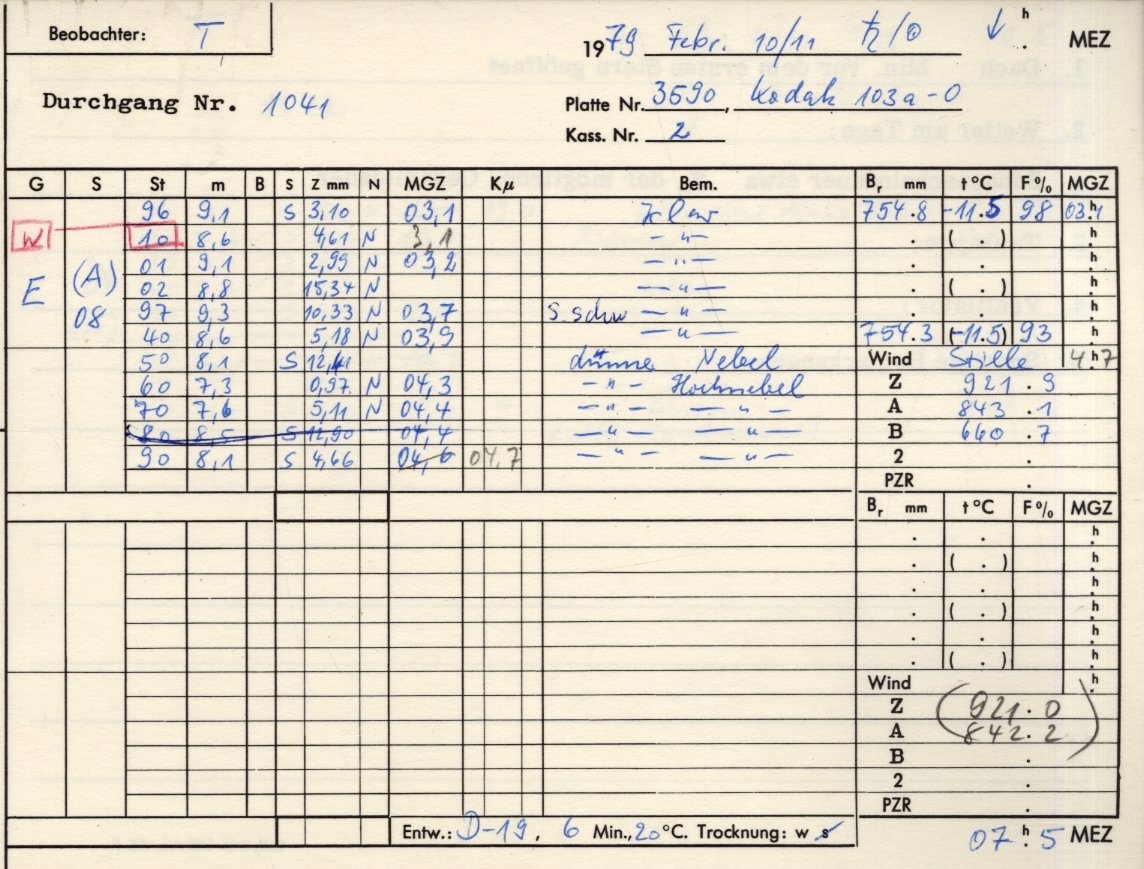 Beobachter: T
1979 Febr. 10/11 ♄/☉ ↓ h . MEZ
Durchgang Nr. 1041
Platte Nr. 3590, Kodak 103a-O
Kass. Nr. 2
G S St m B S Z mm N MGZ Kμ Bem. Br mm t°C F% MGZ
96 9,1 S 3,10 03,1 klar 754.8 -11.5 98 03.1
W 10 8,6 4,61 N 3,1 — " — . ( . ) h
01 9,1 2,99 N 03,2 — " — . . h
E (A) 02 8,8 15,34 N — " — . ( . ) h
08 97 9,3 10,33 N 03,7 s. schw — " — . . h
40 8,6 5,18 N 03,9 — " — 754.3 (-11.5) 93 h
50 8,1 S 12,41 dünne Nebel Wind Stille 4h7
60 7,3 0,97 N 04,3 — " — Hochnebel Z 921.9
70 7,6 5,11 N 04,4 — " — — " — A 843.1
80 8,5 S 12,90 04,4 — " — — " — B 660.7
90 8,1 S 4,66 04,6 04,7 — " — — " — 2 .
PZR .
Br mm t°C F% MGZ
. . h
. ( . ) h
. . h
. ( . ) h
. . h
. ( . ) h
Wind h
Z (921.0
A 842.2)
B .
2 .
PZR .
Entw.: D-19, 6 Min., 20°C. Trocknung: w s
07 h 5 MEZ